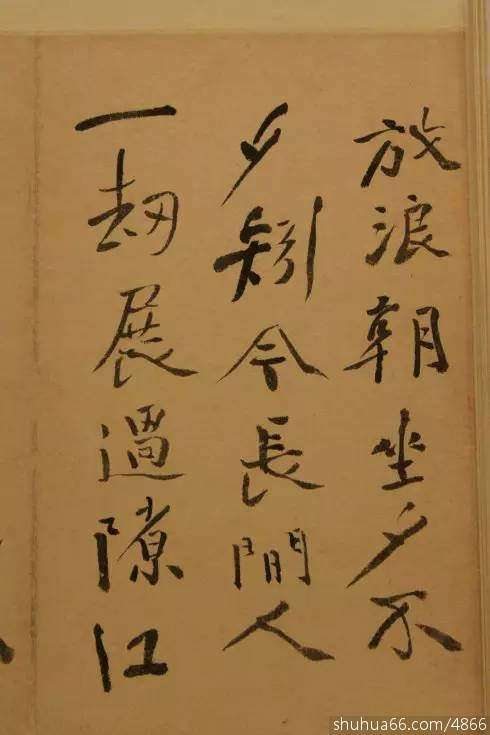 放浪朝坐夕不
夕矧令長閒人
一刼展過隙江
shuhua66.com/4866